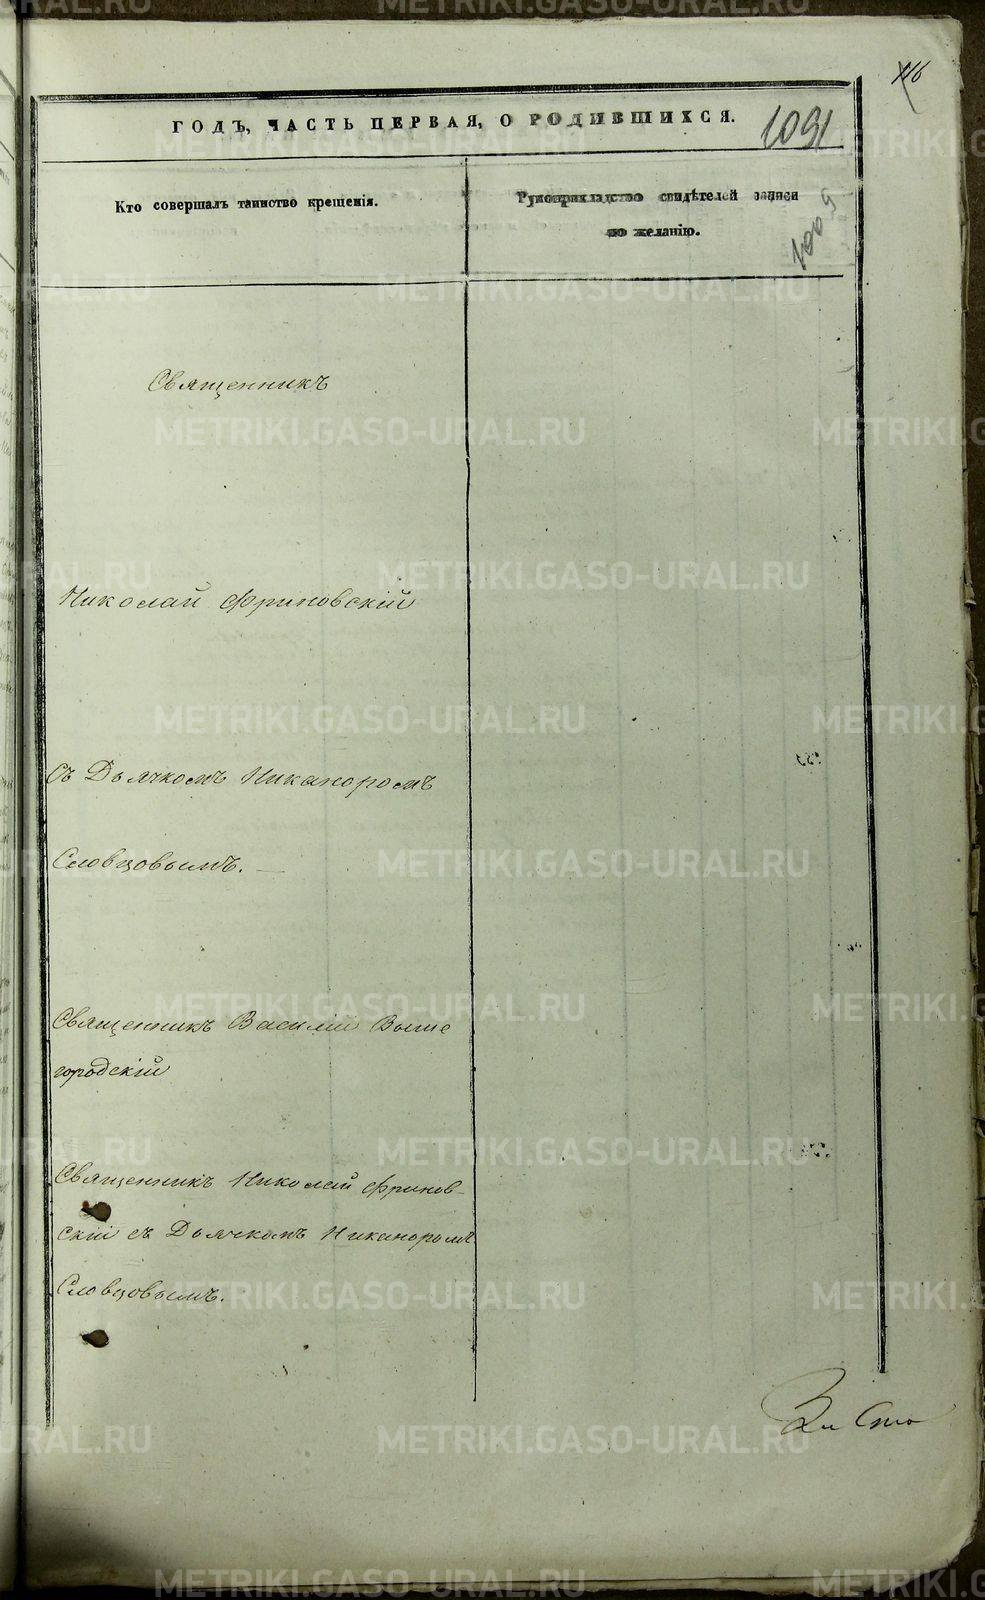 116
ГОДЪ, ЧАСТЬ ПЕРВАЯ, О РОДИВШИХСЯ.
1091
Кто совершалъ таинство крещенія.
Рукоприкладство свидѣтелей записи
по желанію.
1009
Священникъ
Николай Фриновскій
Съ Дьячкомъ Никаноромъ
Словцовымъ.
Священникъ Василій Выше
городскій
Священникъ Николай Фринов-
скій съ Дьячкомъ Никаноромъ
Словцовымъ.
METRIKI.GASO-URAL.RU